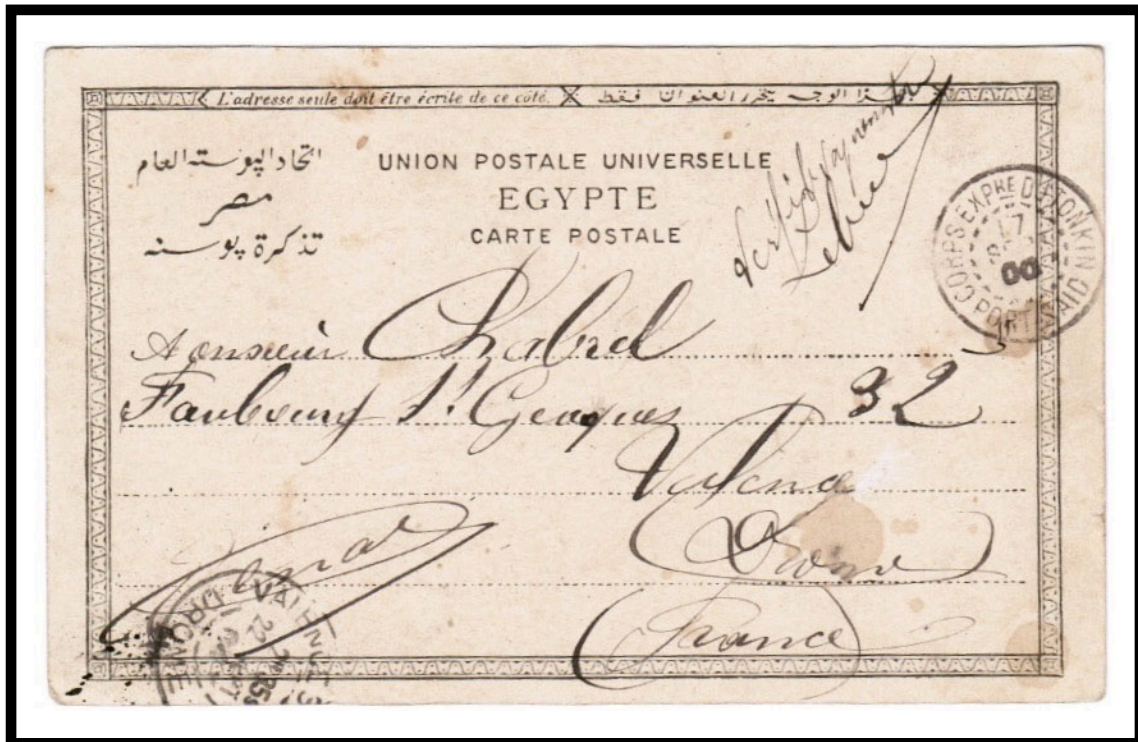 L'adresse seule doit être écrite de ce côté.
بهذا الوجه يحرر العنوان فقط
اتحاد البوستة العام
مصر
تذكرة بوستة
UNION POSTALE UNIVERSELLE
EGYPTE
CARTE POSTALE
CORPS EXPRE D. TONKIN
PORT SAID
17
00
Monsieur Chabrel
Faubourg St Jacques 32
Valence
Drome
(France)
VALENCE
DROME
22